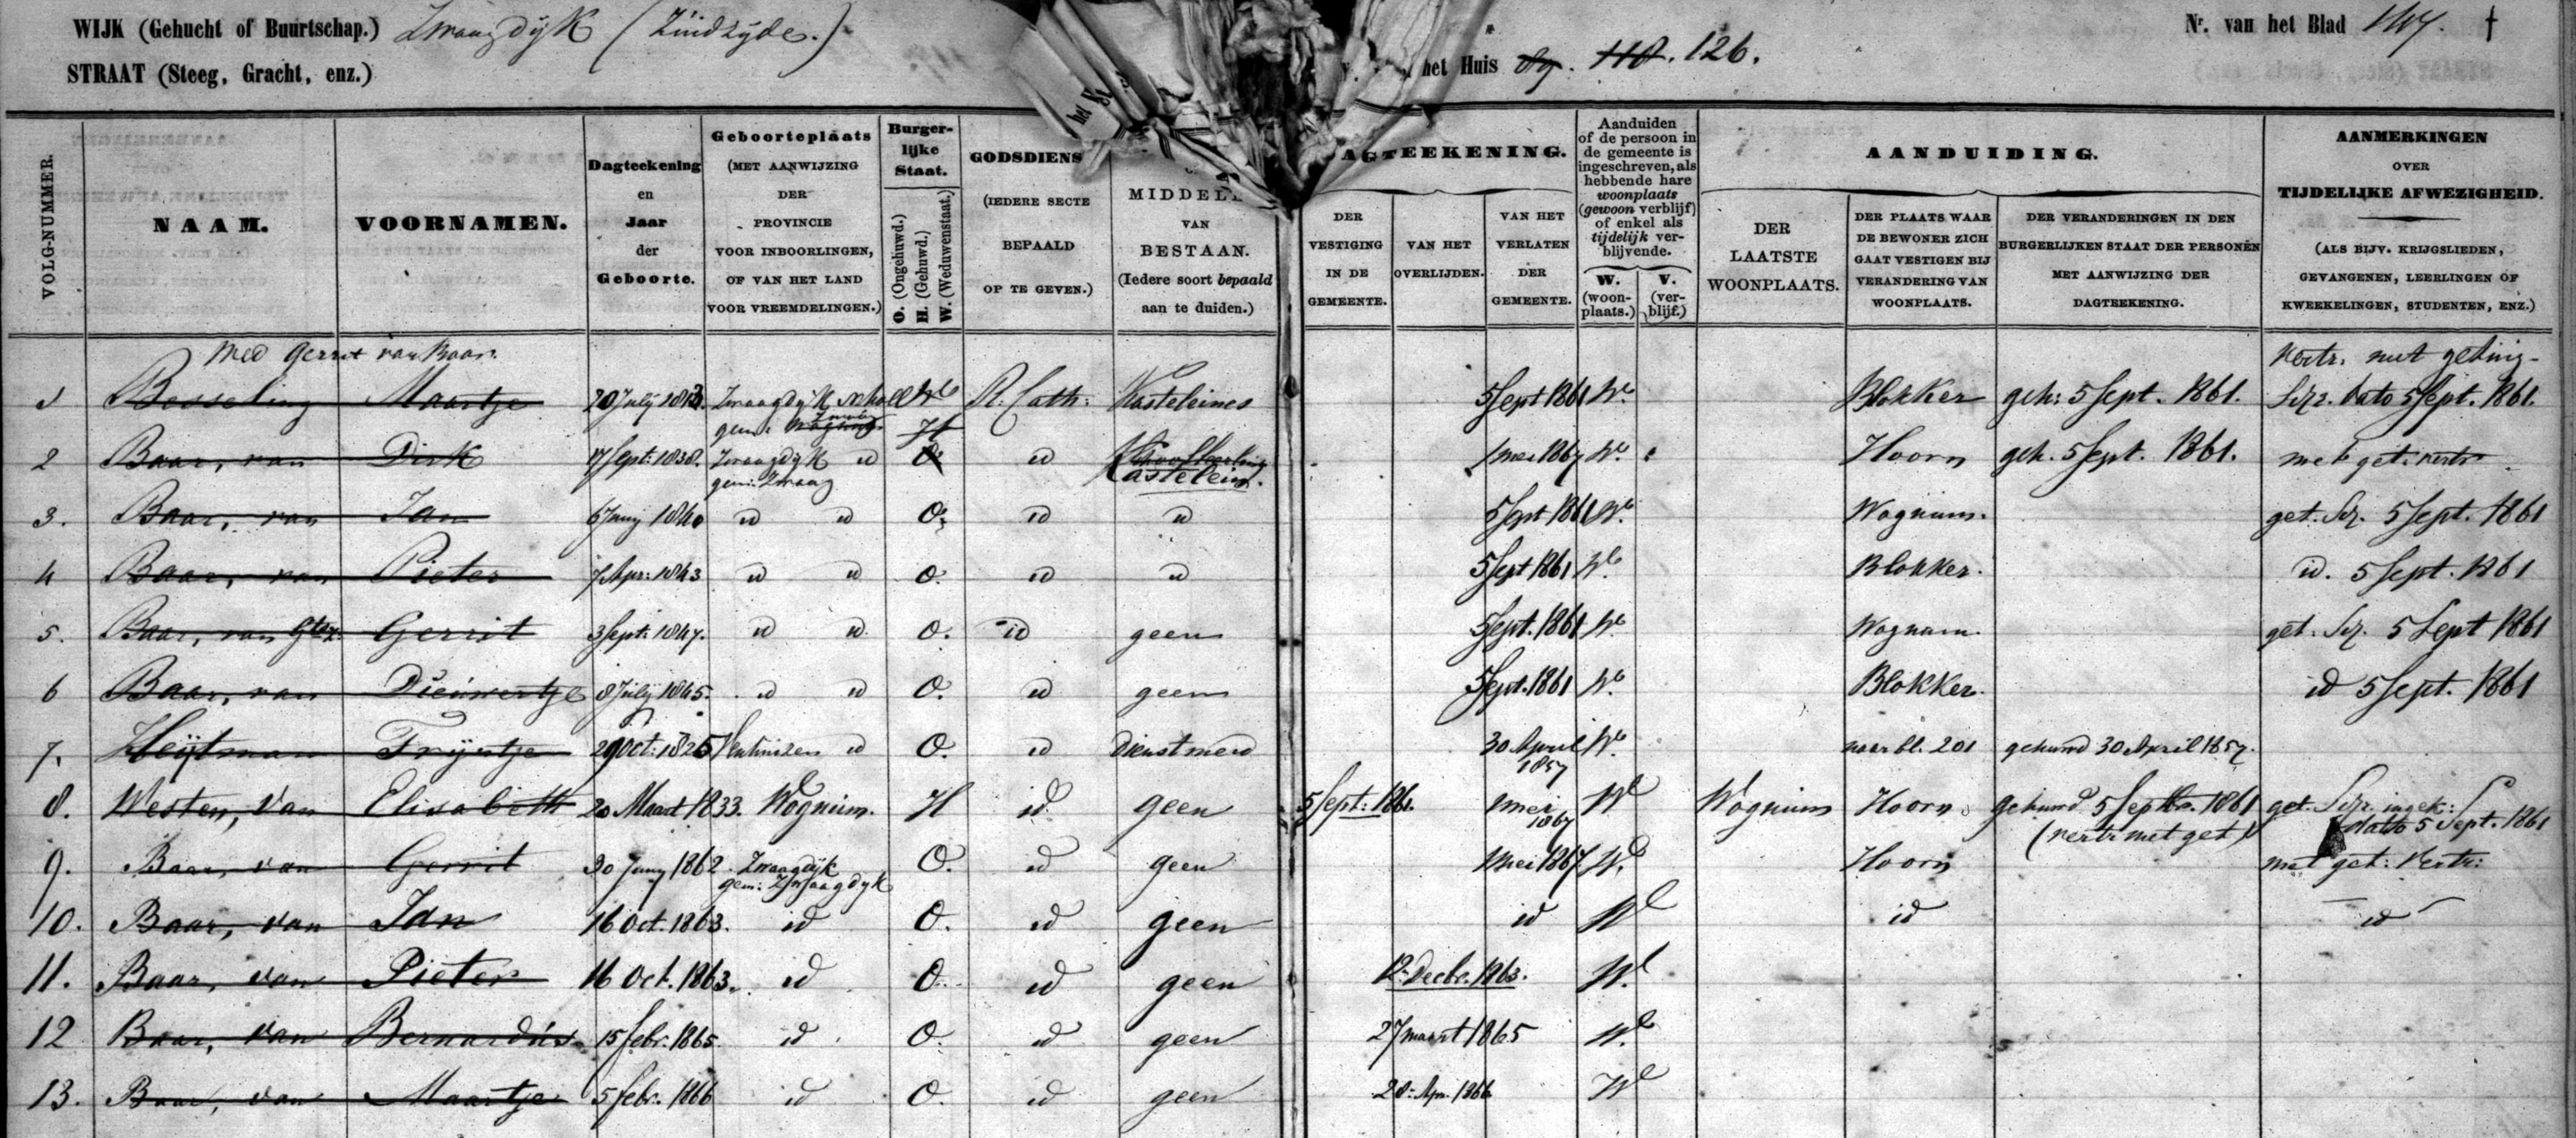 WIJK (Gehucht of Buurtschap.) Zwaagdijk (Zuidzijde.)
Nr. van het Blad 147. †
STRAAT (Steeg, Gracht, enz.)
het Huis 89. 110. 126.
VOLG-NUMMER.
NAAM.
VOORNAMEN.
Dagteekening
en
Jaar
der
Geboorte.
Geboorteplaats
(MET AANWIJZING
DER
PROVINCIE
VOOR INBOORLINGEN,
OF VAN HET LAND
VOOR VREEMDELINGEN.)
Burger-
lijke
Staat.
O. (Ongehuwd.)
H. (Gehuwd.)
W. (Weduwenstaat.)
GODSDIENS
(IEDERE SECTE
BEPAALD
OP TE GEVEN.)
MIDDEL
VAN
BESTAAN.
(Iedere soort bepaald
aan te duiden.)
AGTEEKENING.
DER
VESTIGING
IN DE
GEMEENTE.
VAN HET
OVERLIJDEN.
VAN HET
VERLATEN
DER
GEMEENTE.
Aanduiden
of de persoon in
de gemeente is
ingeschreven, als
hebbende hare
woonplaats
(gewoon verblijf)
of enkel als
tijdelijk ver-
blijvende.
W.
(woon-
plaats.)
V.
(ver-
blijf.)
AANDUIDING.
DER
LAATSTE
WOONPLAATS.
DER PLAATS WAAR
DE BEWONER ZICH
GAAT VESTIGEN BIJ
VERANDERING VAN
WOONPLAATS.
DER VERANDERINGEN IN DEN
BURGERLIJKEN STAAT DER PERSONEN
MET AANWIJZING DER
DAGTEEKENING.
AANMERKINGEN
OVER
TIJDELIJKE AFWEZIGHEID.
(ALS BIJV. KRIJGSLIEDEN,
GEVANGENEN, LEERLINGEN OF
KWEEKELINGEN, STUDENTEN, ENZ.)
Wed Gerrit van Baar. vertr. met getuig-
1 Besseling Maartje 20 July 1813. Zwaagdijk We R. Cath: Kasteleines 5 Sept 1861 We Blokker geh: 5 Sept. 1861. dato 5 Sept. 1861.
gem: Zwaag H
2 Baar, van Dirk 17 Sept: 1838. Zwaagdijk id O id Kastelein. 1 mei 1867 We Hoorn geh. 5 Sept. 1861. met get: vertr
gem: Zwaag
3. Baar, van Jan 6 Juny 1840 id id O. id id 5 Sept 1861 We Wognum. get. 5 Sept. 1861
4 Baar, van Pieter 7 Apr: 1843 id id O. id id 5 Sept 1861 We Blokker. id. 5 Sept. 1861
5. Baar, van Gtsz. Gerrit 3 Sept: 1847. id id O. id geen 5 Sept. 1861 We Wognum. get. 5 Sept 1861
6 Baar, van Dieuwertje 8 July 1845. id id O. id geen 5 Sept. 1861 We Blokker. id 5 Sept. 1861
7. Heijtman Trijntje 29 Oct: 1825 Venhuizen id O. id Dienstmeid 30 April 1857 We naar bl. 201 gehuwd 30 April 1857.
8. Westen, van Elisabeth 20 Maart 1833. Wognum. H id geen 5 Sept: 1861. 1 mei 1867 We Wognum Hoorn gehuwd 5 Septbr. 1861 get. ingek:
(vertr met get) datto 5 Sept. 1861
9. Baar, van Gerrit 30 Juny 1862. Zwaagdijk O. id geen 1 mei 1867 We Hoorn met get: vertr:
gem: Zwaagdijk
10. Baar, van Jan 16 Oct. 1863. id O. id geen id We id id
11. Baar, van Pieter 16 Oct. 1863. id O. id geen 12 Decbr. 1863. We
12 Baar, van Bernardus 15 febr. 1865. id O. id geen 27 maart 1865 We
13. Baar, van Maartje 5 febr. 1866 id O. id geen 28 Apr. 1866 We